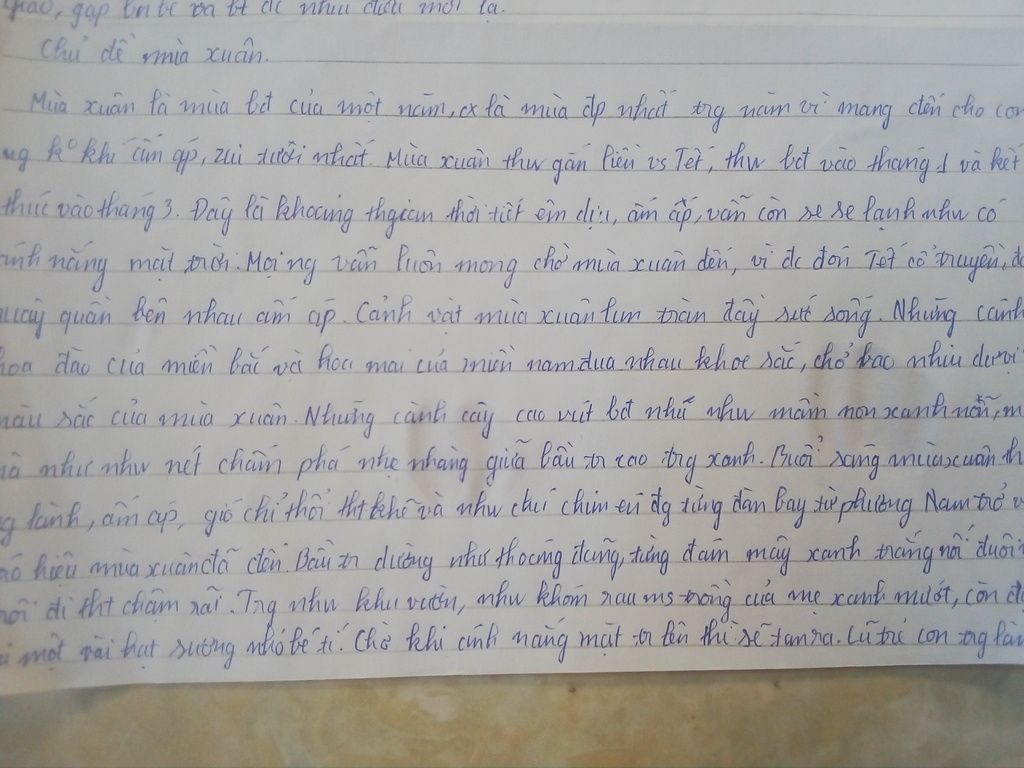 gặp bn bè và bt đc nhiu điều mới lạ.
Chủ đề mùa xuân.
Mùa xuân là mùa bđ của một năm, cx là mùa đp nhất trg năm vì mang đến cho con
ng kº khí ấm áp, zui tươi nhất. Mùa xuân thư gắn liền vs Tết, thư bđ vào tháng 1 và kết
thúc vào tháng 3. Đây là khoảng thgian thời tiết êm dịu, ấm áp, vẫn còn se se lạnh như có
ánh nắng mặt trời. Mọi ng vẫn luôn mong chờ mùa xuân đến, vì đc đón Tết cổ truyền, đc
quây quần bên nhau ấm áp. Cảnh vật mùa xuân lun tràn đầy sức sống. Những cành
hoa đào của miền bắc và hoa mai của miền nam đua nhau khoe sắc, chở bao nhiu dược
màu sắc của mùa xuân. Những cành cây cao vút bđ nhú như mầm non xanh nõn,
như như nét chấm phá nhẹ nhàng giữa bầu tr cao trg xanh. Buổi sáng mùa xuân
lành, ấm áp, gió chỉ thổi tht khẽ và như chú chim én đg từng đàn bay từ phương Nam trở
hiệu mùa xuân đã đến. Bầu tr dường như thoáng đãng, từng đám mây xanh trắng nối đuôi
đi tht chậm rãi. Trg như khu vườn, như khóm rau ms trồng của mẹ xanh mướt, còn
một vài hạt sương nhỏ bé tí. Chờ khi ánh nắng mặt tr lên thì sẽ tan ra. Lũ trẻ con trg làng